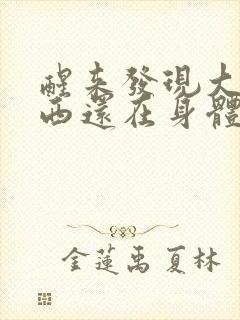 醒来發現大
西還在身體
金蓮禹夏林